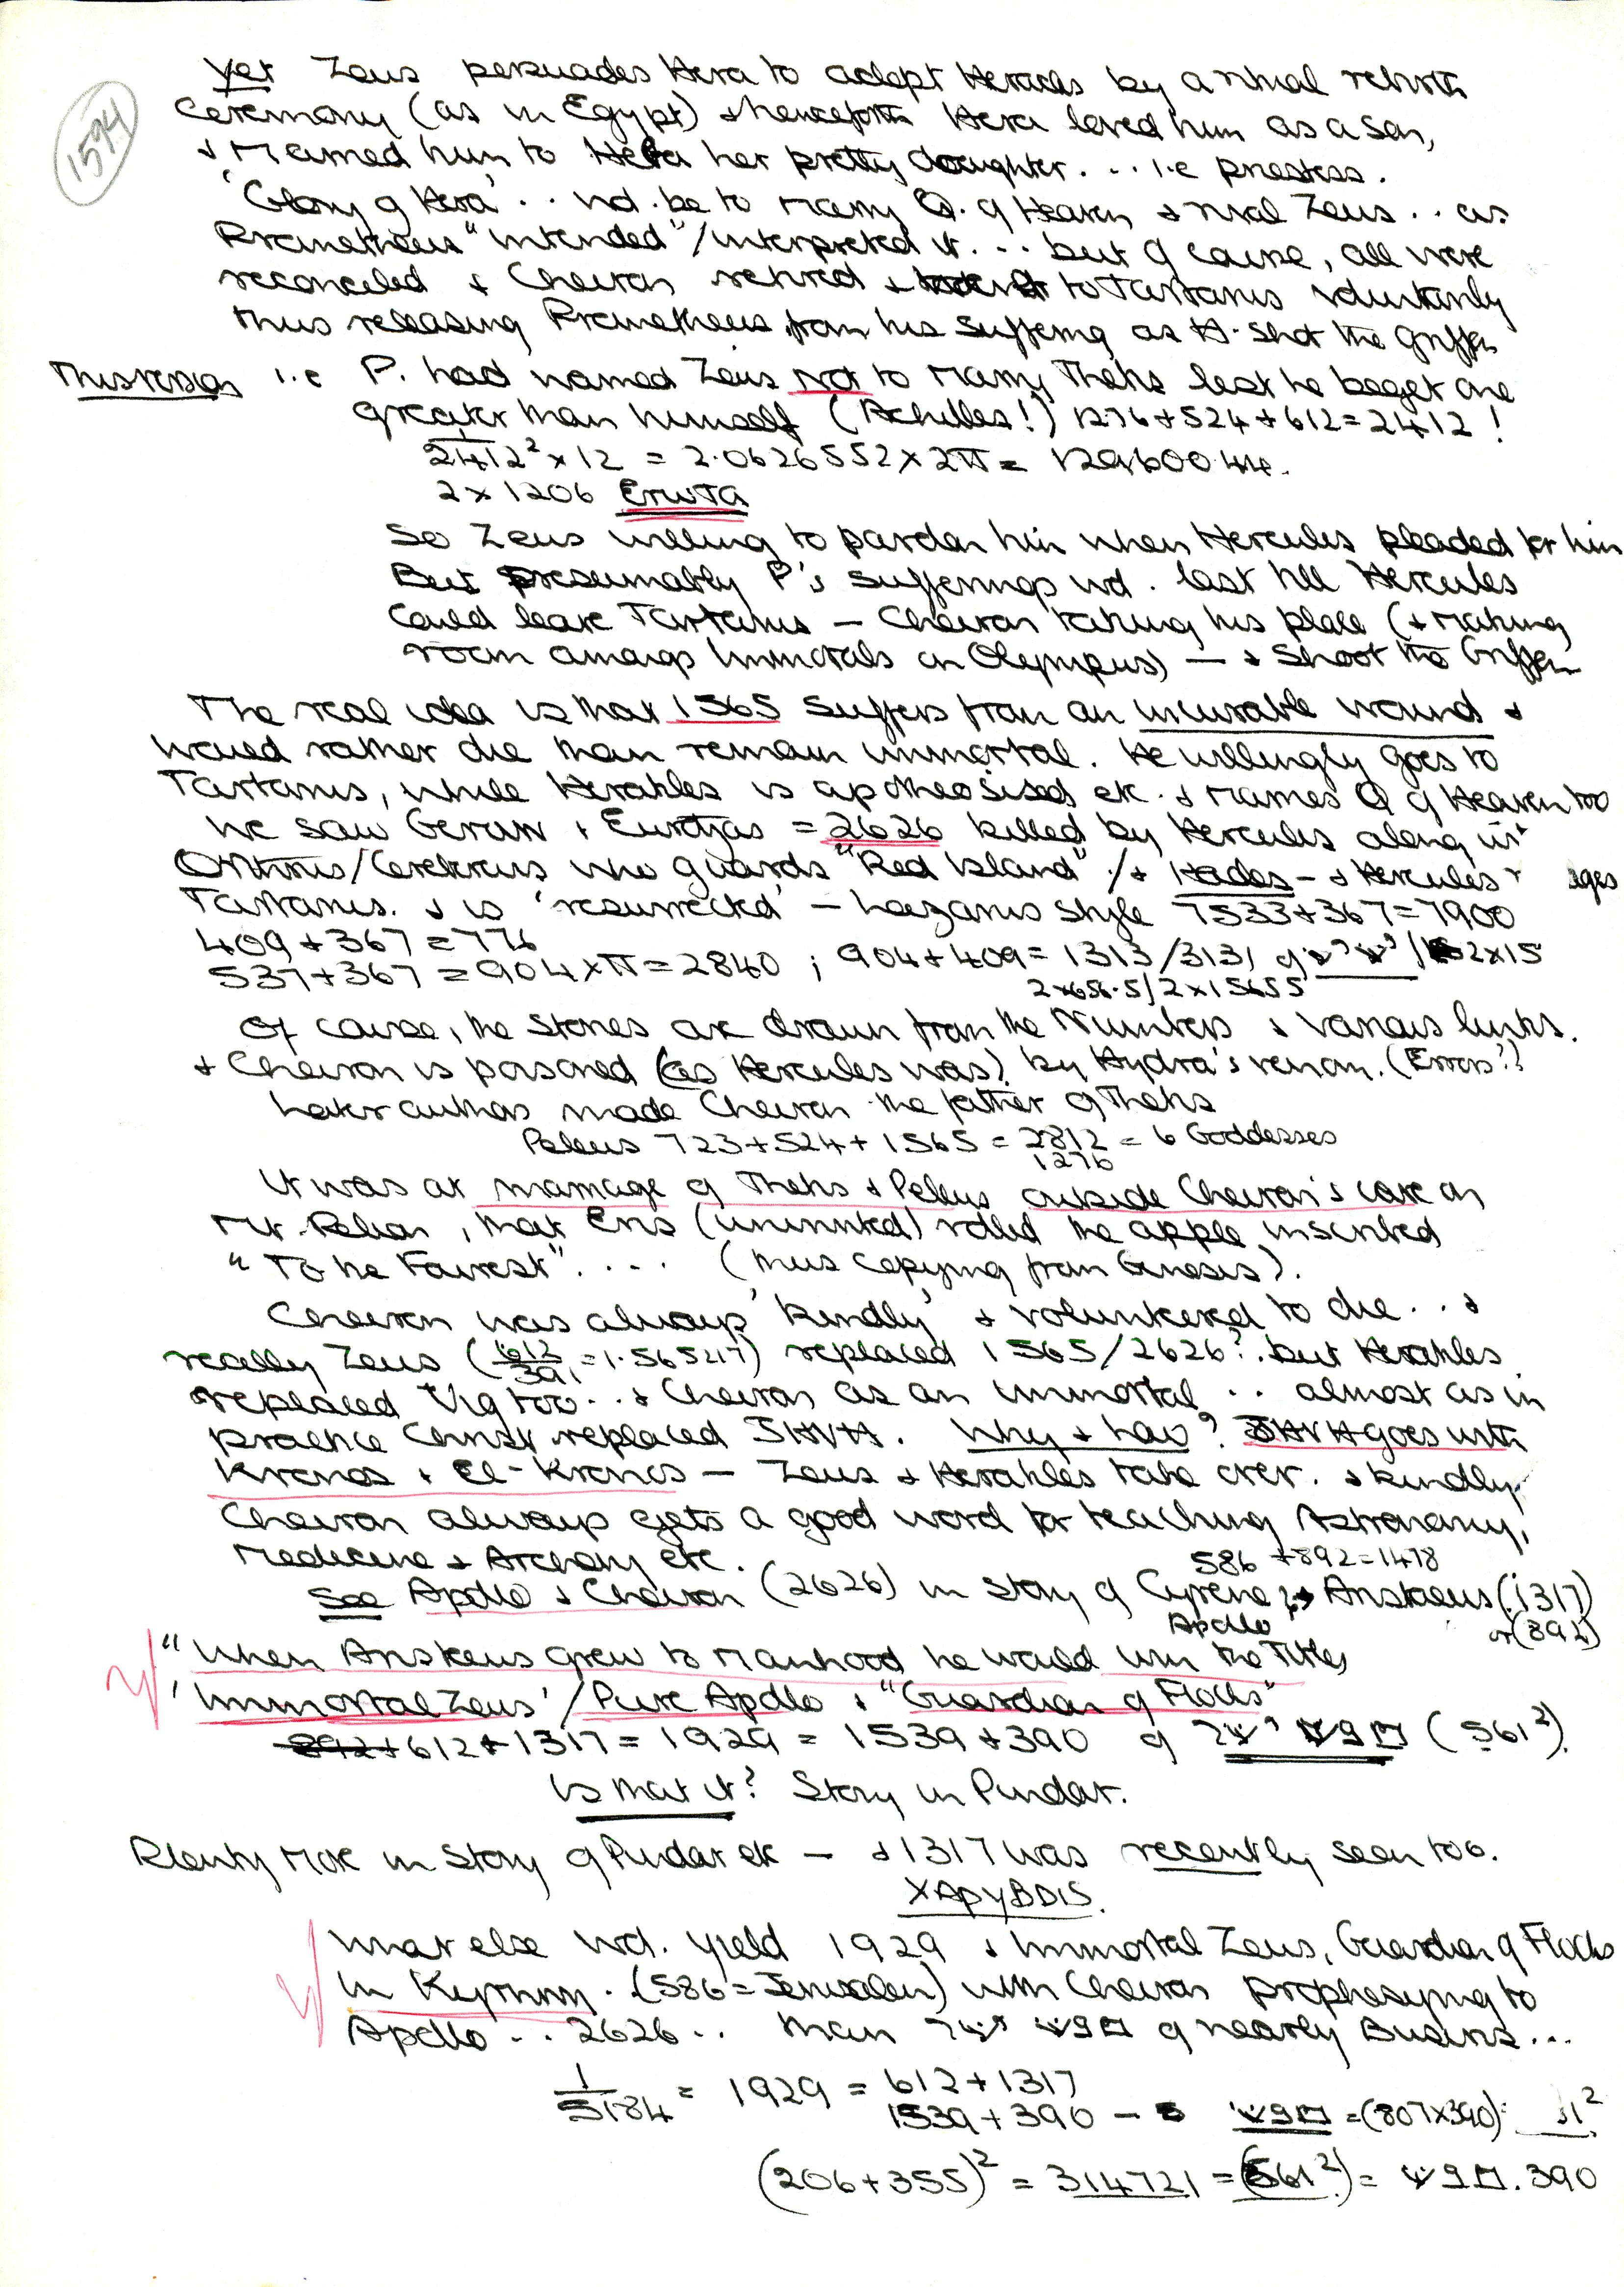 1594
Yet Zeus persuades Hera to adopt Heracles by a ritual rebirth
Ceremony (as in Egypt) & henceforth Hera loved him as a son,
& Married him to her pretty daughter... i.e priestess.
'Glory of Hera'.. wd. be to Marry Q. of Heaven & rival Zeus.. as
Prometheus "intended"/interpreted it... but of course, all were
reconciled & Cheiron retired & to Tartarus voluntarily
thus releasing Prometheus from his suffering as H. shot the Griffen
This version i.e P. had warned Zeus Not to Marry Thetis lest he beget one
greater than himself (Achilles!) 1276+524+612=2412!
2412² x 12 = 2.0626552 x 2π =
2 x 1206
So Zeus willing to pardon him when Hercules pleaded for him
But presumably P's sufferings wd. last till Hercules
Could leave Tartarus — Cheiron taking his place (& Making
room amongs Immortals on Olympus) — & Shoot the Griffen
The real idea is that 1565 suffers from an incurable wound &
would rather die than remain immortal. He willingly goes to
Tartarus, while Herakles is apotheosised etc. & Marries Q of Heaven too
We saw Geryon & = 2626 killed by Hercules along wt
Orthrus/Cerberus who guards "Red Island" /& Hades — & Hercules
Tartarus. & is 'resurrected' — Lazarus style 7533+367=7900
409+367=776
537+367=904xπ=2840 ; 904+409=1313/3131 of 2x15
2x656.5/2x15655
Of course, the Stories are drawn from the Numbers & various links.
& Cheiron is poisoned (as Hercules was) by Hydra's venom. (Error??
Later authors made Cheiron the father of Thetis
Peleus 723+524+1565=2812=6 Goddesses
1276
It was at marriage of Thetis & Peleus outside Cheiron's cave on
Mt. Pelion, that Eris (uninvited) rolled the apple inscribed
"To the Fairest".... (thus copying from Genesis).
Cheiron was always 'kindly' & volunteered to die... &
really Zeus (612/391=1.565217) replaced 1565/2626?. but Herakles
replaced too... & Cheiron as an immortal.. almost as in
practice Christ replaced JHVH. Why & how? JHVH goes with
Kronos & El-Kronos — Zeus & Herakles take over. & kindly
Cheiron always gets a good word for teaching Astronomy,
Medicine & Archery etc.
586 +892=1478
See Apollo & Cheiron (2626) in Story of Cyrene & Aristaeus (1317)
Apollo or (892)
"When Aristeus grew to Manhood he would win the Titles
'Immortal Zeus'/Pure Apollo & "Guardian of Flocks"
892+612+1317=1929=1539+390 of (561²).
Is that it? Story in Pindar.
Plenty More in Story of Pindar etc — & 1317 was recently seen too.
XApyBDIS.
What else wd. yield 1929 & Immortal Zeus, Guardian of Flocks
in . (586=Jerusalem) with Cheiron prophesying to
Apollo.. 2626.. than of nearly
1/5184 = 1929 = 612+1317
1539+390 — =(807x390)
(206+355)² = 314721 = (561²) = .390